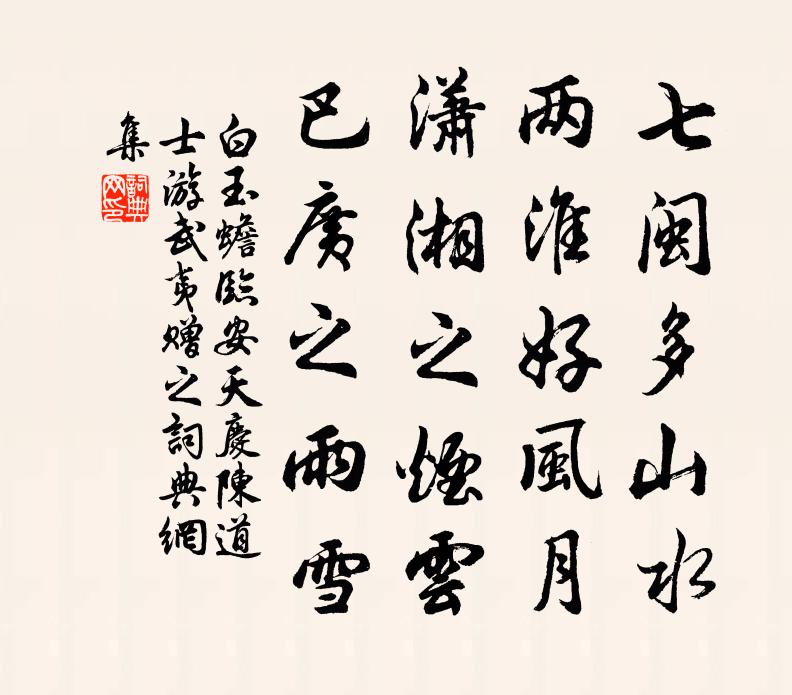 七閩多山水
两淮好風月
瀟湘之煙雲
巴廣之雨雪
白玉蟾臨安天慶陳道
士游武夷贈之詞典網
集
詞典
网印